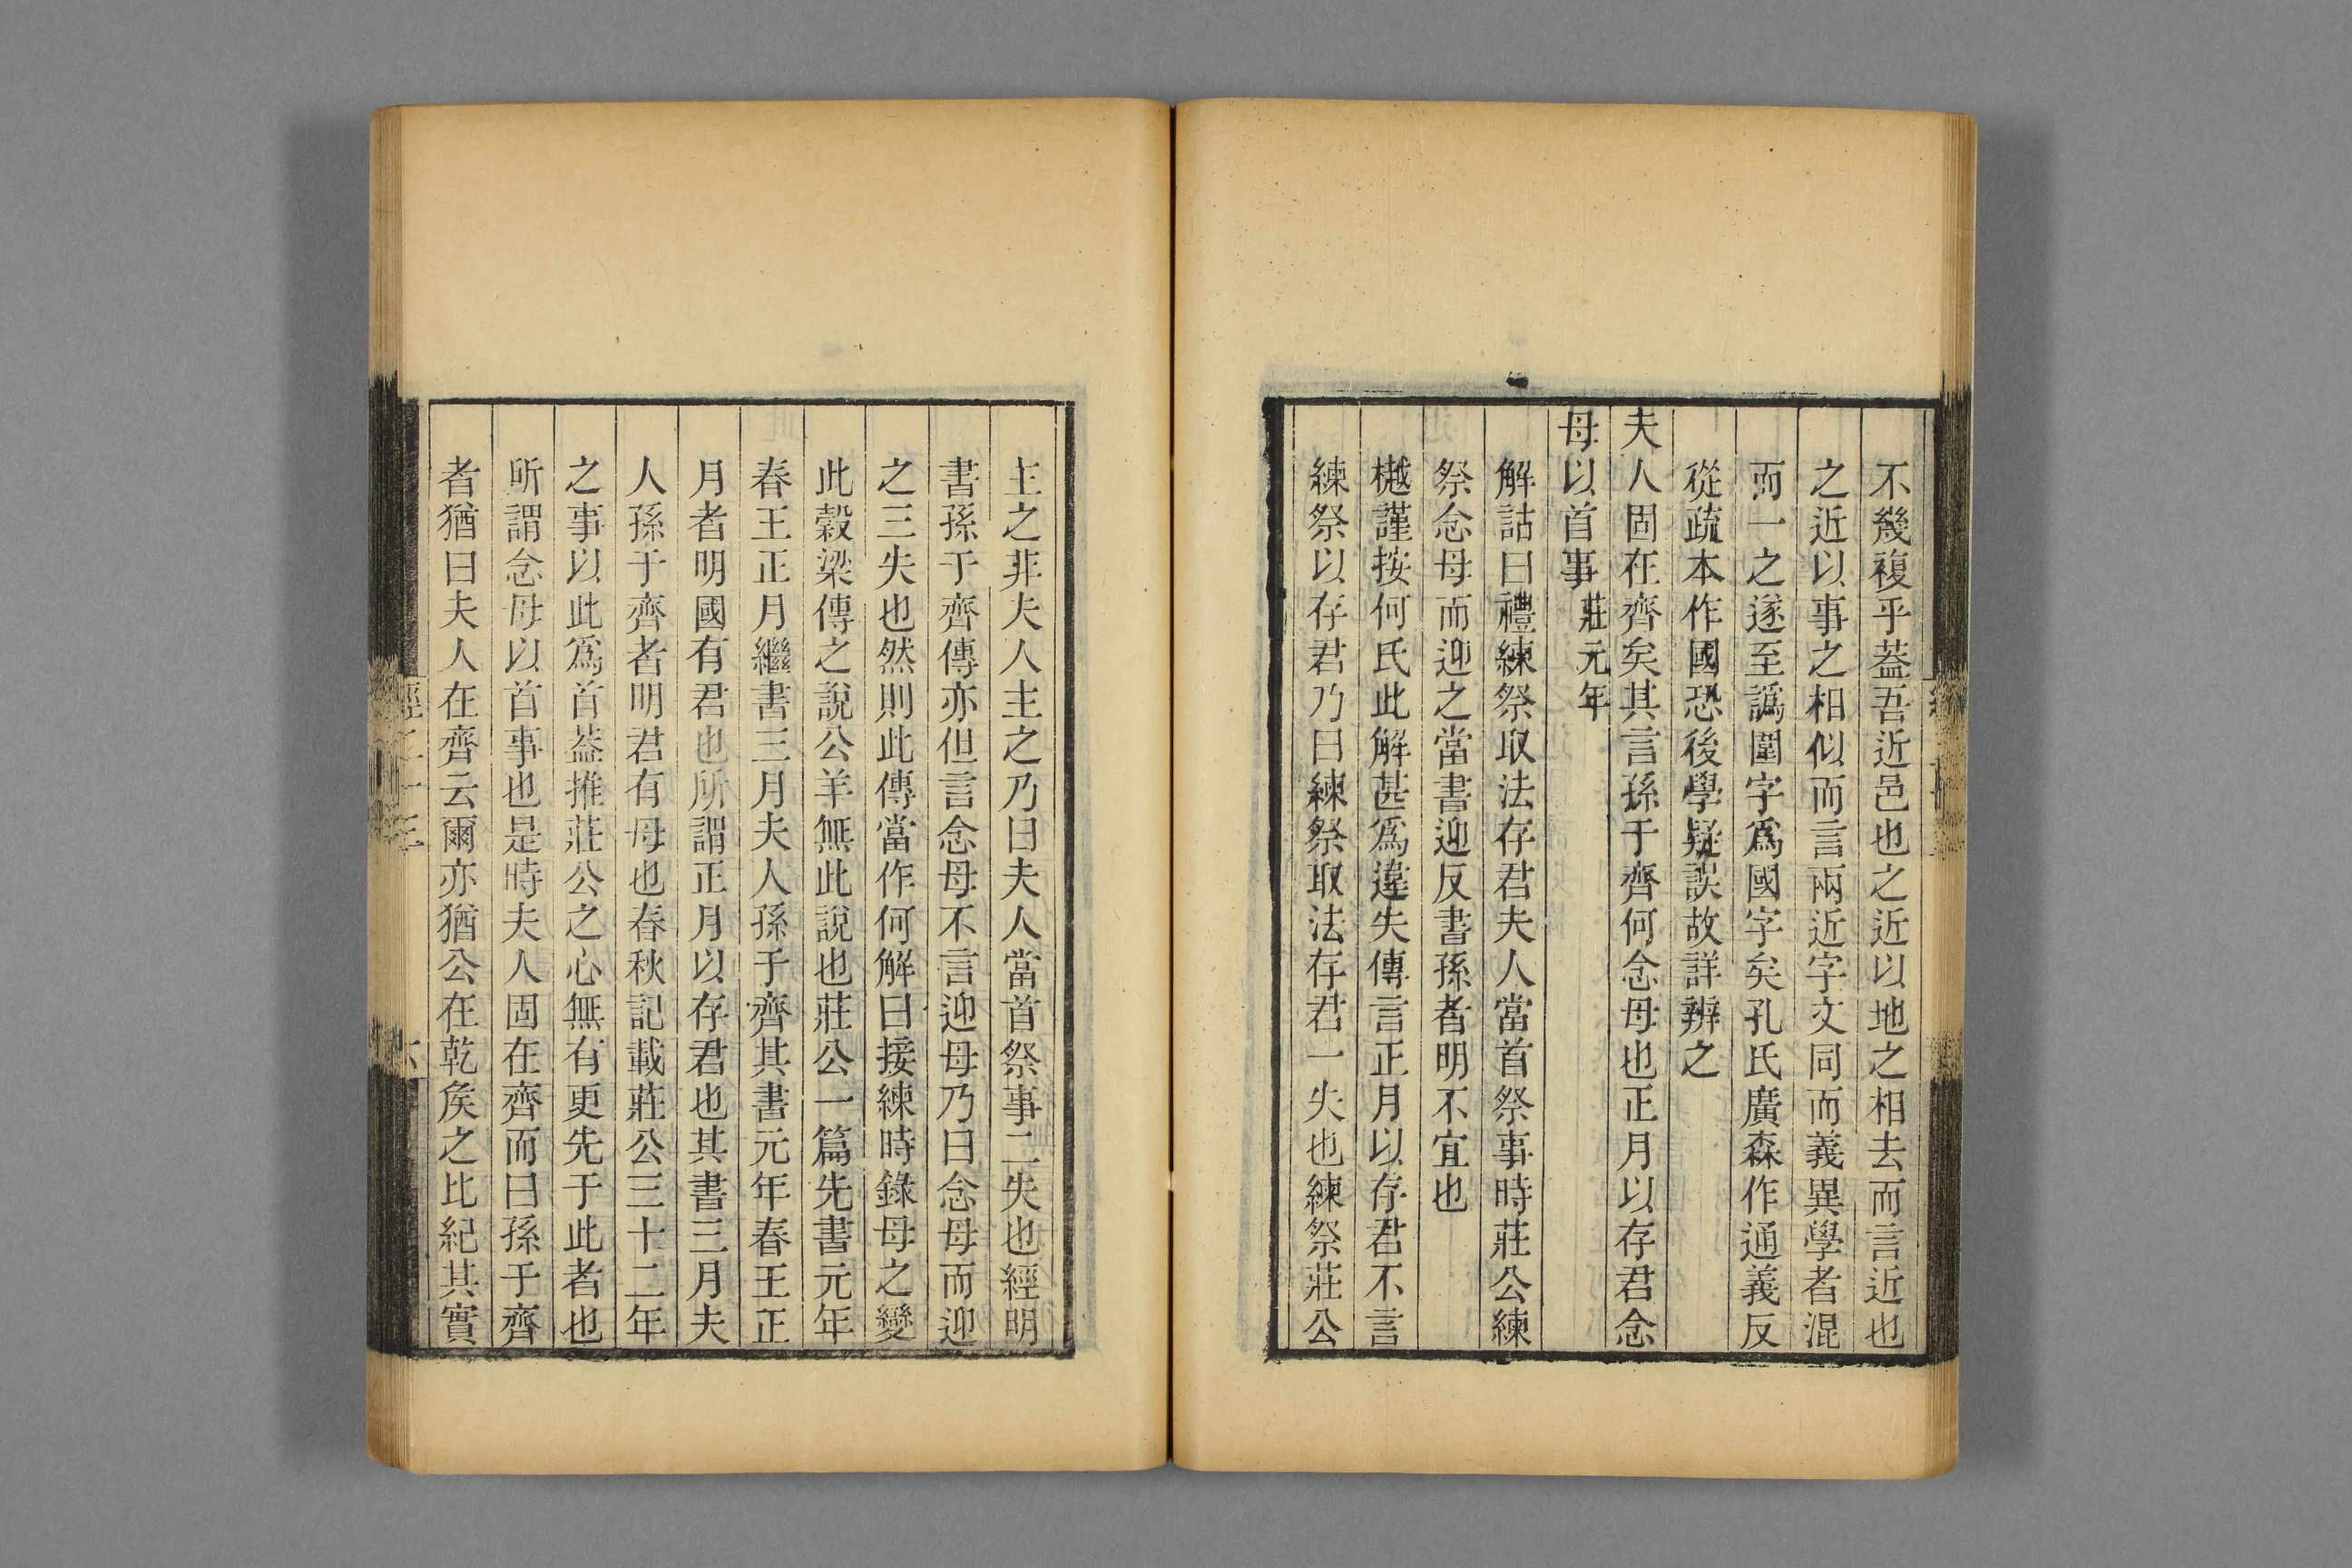 不幾複乎葢吾近邑也之近以地之相去而言近也
之近以事之相似而言兩近字文同而義異學者混
而一之遂至譌圍字爲國字矣孔氏廣森作通義反
從疏本作國恐後學疑誤故詳辨之
夫人固在齊矣其言孫于齊何念母也正月以存君念
母以首事莊元年
解詁曰禮練祭取法存君夫人當首祭事時莊公練
祭念母而迎之當書迎反書孫者明不宜也
樾謹按何氏此解甚爲違失傳言正月以存君不言
練祭以存君乃曰練祭取法存君一失也練祭莊公
主之非夫人主之乃曰夫人當首祭事二失也經明
書孫于齊傳亦但言念母不言迎母乃曰念母而迎
之三失也然則此傳當作何解曰接練時錄母之變
此穀梁傳之說公羊無此說也莊公一篇先書元年
春王正月繼書三月夫人孫于齊其書元年春王正
月者明國有君也所謂正月以存君也其書三月夫
人孫于齊者明君有母也春秋記載莊公三十二年
之事以此爲首葢推莊公之心無有更先于此者也
所謂念母以首事也是時夫人固在齊而曰孫于齊
者猶曰夫人在齊云爾亦猶公在乾矦之比紀其實
經二十三
六